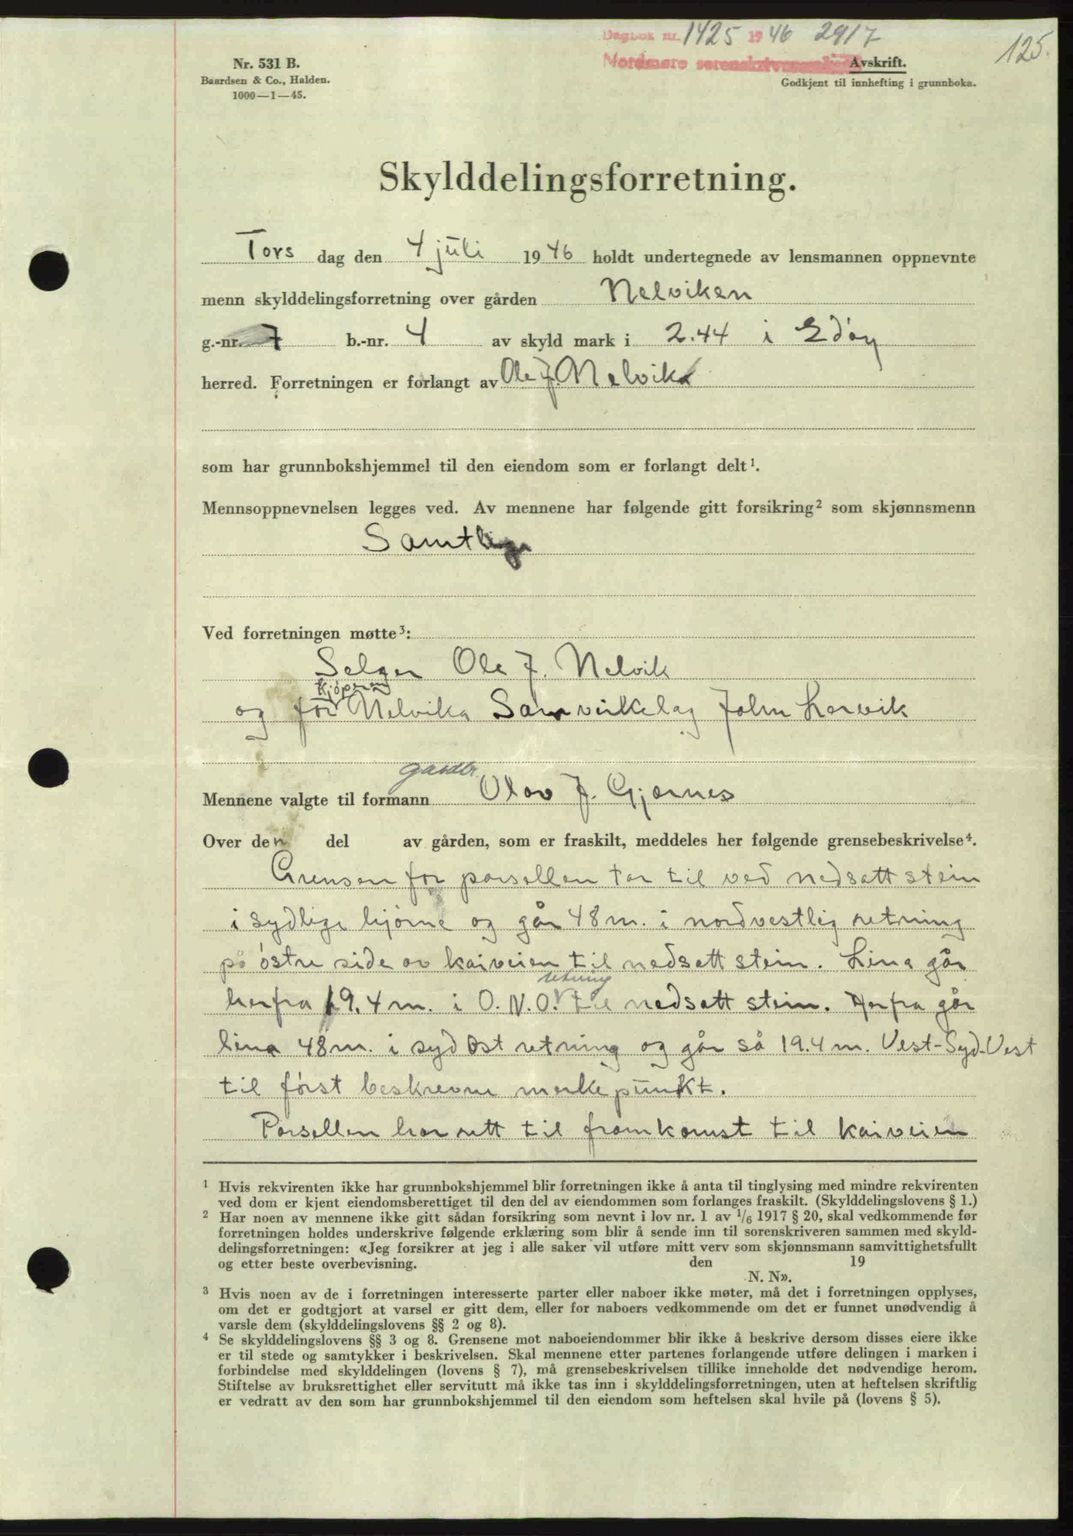 Dagbok nr. 1425 1946 2917
125.
Nordmøre sorenskriverembete
Nr. 531 B.
Baardsen & Co., Halden.
1000—1—45.
Avskrift.
Godkjent til innhefting i grunnboka.
Skylddelingsforretning.
Tors dag den 4 juli 1946 holdt undertegnede av lensmannen oppnevnte
menn skylddelingsforretning over gården Nelviken
g.-nr. 7 b.-nr. 4 av skyld mark i 2.44 i Edöy
herred. Forretningen er forlangt av Ole J. Nelvik
som har grunnbokshjemmel til den eiendom som er forlangt delt¹.
Mennsoppnevnelsen legges ved. Av mennene har følgende gitt forsikring² som skjønnsmenn
Samtlige
Ved forretningen møtte³:
Selger Ole J. Nelvik
kjöperen
og for Nelvika Samvirkelag John Lervik
gardbr.
Mennene valgte til formann Olav J. Gjørnes
Over den del av gården, som er fraskilt, meddeles her følgende grensebeskrivelse⁴.
Grensen for parsellen tar til ved nedsatt stein
i sydlige hjörne og går 48 m. i nordvestlig retning
på östre side av kaiveien til nedsatt stein. Lina går
retning
herfra 19.4 m. i O.N.O. til nedsatt stein. Herfra går
lina 48 m. i syd Ost retning og går så 19.4 m. Vest-Syd-Vest
til först beskrevne merkepunkt.
Parsellen har rett til framkomst til kaiveien
¹ Hvis rekvirenten ikke har grunnbokshjemmel blir forretningen ikke å anta til tinglysing med mindre rekvirenten
ved dom er kjent eiendomsberettiget til den del av eiendommen som forlanges fraskilt. (Skylddelingslovens § 1.)
² Har noen av mennene ikke gitt sådan forsikring som nevnt i lov nr. 1 av 1/6 1917 § 20, skal vedkommende før
forretningen holdes underskrive følgende erklæring som blir å sende inn til sorenskriveren sammen med skyld-
delingsforretningen: «Jeg forsikrer at jeg i alle saker vil utføre mitt verv som skjønnsmann samvittighetsfullt
og etter beste overbevisning. den 19
N. N».
³ Hvis noen av de i forretningen interesserte parter eller naboer ikke møter, må det i forretningen opplyses,
om det er godtgjort at varsel er gitt dem, eller for naboers vedkommende om det er funnet unødvendig å
varsle dem (skylddelingslovens §§ 2 og 8).
⁴ Se skylddelingslovens §§ 3 og 8. Grensene mot naboeiendommer blir ikke å beskrive dersom disses eiere ikke
er til stede og samtykker i beskrivelsen. Skal mennene etter partenes forlangende utføre delingen i marken i
forbindelse med skylddelingen (lovens § 7), må grensebeskrivelsen tillike inneholde det nødvendige herom.
Stiftelse av bruksrettighet eller servitutt må ikke tas inn i skylddelingsforretningen, uten at heftelsen skriftlig
er vedratt av den som har grunnbokshjemmel til den eiendom som heftelsen skal hvile på (lovens § 5).